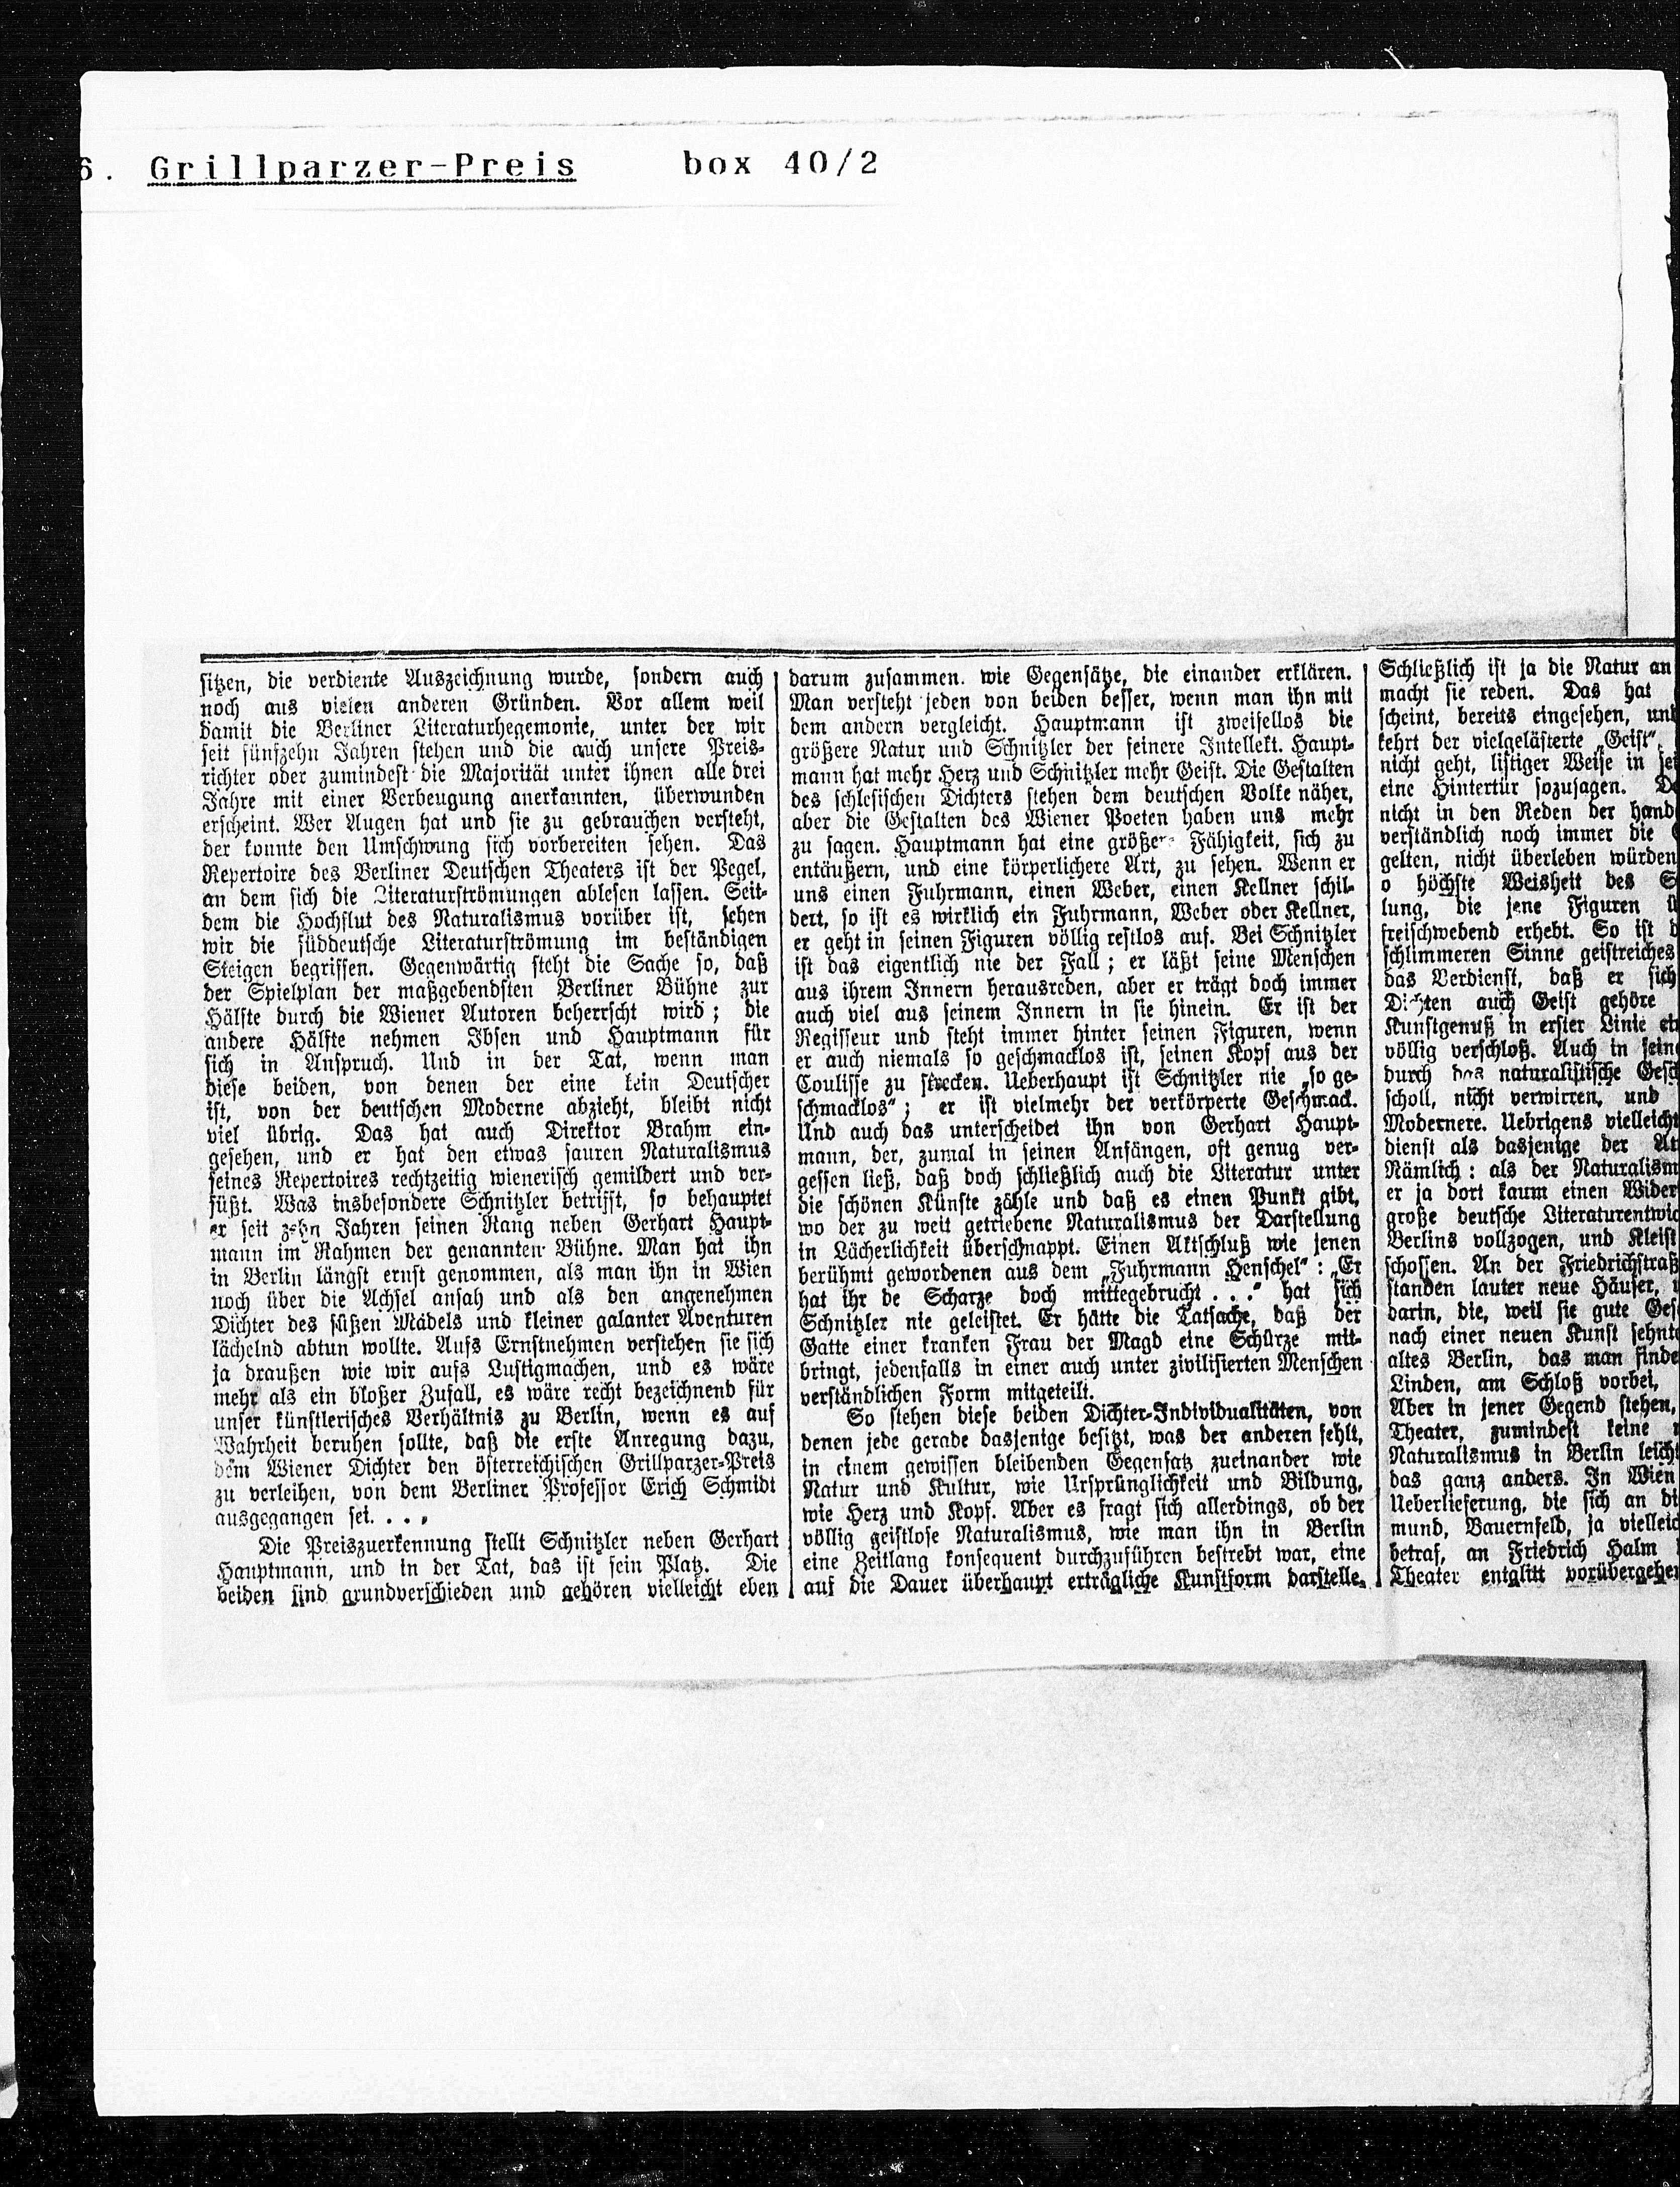 6. Grillparzer-Preis box 40/2
sitzen, die verdiente Auszeichnung wurde, sondern auch
noch aus vielen anderen Gründen. Vor allem weil
damit die Berliner Literaturhegemonie, unter der wir
seit fünfzehn Jahren stehen und die auch unsere Preis-
richter oder zumindest die Majorität unter ihnen alle drei
Jahre mit einer Verbeugung anerkannten, überwunden
erscheint. Wer Augen hat und sie zu gebrauchen versteht,
der konnte den Umschwung sich vorbereiten sehen. Das
Repertoire des Berliner Deutschen Theaters ist der Pegel,
an dem sich die Literaturströmungen ablesen lassen. Seit-
dem die Hochflut des Naturalismus vorüber ist, sehen
wir die süddeutsche Literaturströmung im beständigen
Steigen begriffen. Gegenwärtig steht die Sache so, daß
der Spielplan der maßgebendsten Berliner Bühne zur
Hälfte durch die Wiener Autoren beherrscht wird; die
andere Hälfte nehmen Ibsen und Hauptmann für
sich in Anspruch. Und in der Tat, wenn man
diese beiden, von denen der eine kein Deutscher
ist, von der deutschen Moderne abzieht, bleibt nicht
viel übrig. Das hat auch Direktor Brahm ein-
gesehen, und er hat den etwas sauren Naturalismus
seines Repertoires rechtzeitig wienerisch gemildert und ver-
süßt. Was insbesondere Schnitzler betrifft, so behauptet
er seit zehn Jahren seinen Rang neben Gerhart Haupt-
mann im Rahmen der genannten Bühne. Man hat ihn
in Berlin längst ernst genommen, als man ihn in Wien
noch über die Achsel ansah und als den angenehmen
Dichter des süßen Mädels und kleiner galanter Aventuren
lächelnd abtun wollte. Aufs Ernstnehmen verstehen sie sich
ja draußen wie wir aufs Lustigmachen, und es wäre
mehr als ein bloßer Zufall, es wäre recht bezeichnend für
unser künstlerisches Verhältnis zu Berlin, wenn es auf
Wahrheit beruhen sollte, daß die erste Anregung dazu,
dem Wiener Dichter den österreichischen Grillparzer-Preis
zu verleihen, von dem Berliner Professor Erich Schmidt
ausgegangen sei. . . .
Die Preiszuerkennung stellt Schnitzler neben Gerhart
Hauptmann, und in der Tat, das ist sein Platz. Die
beiden sind grundverschieden und gehören vielleicht eben
darum zusammen. wie Gegensätze, die einander erklären.
Man versteht jeden von beiden besser, wenn man ihn mit
dem andern vergleicht. Hauptmann ist zweifellos die
größere Natur und Schnitzler der feinere Intellekt. Haupt-
mann hat mehr Herz und Schnitzler mehr Geist. Die Gestalten
des schlesischen Dichters stehen dem deutschen Volke näher,
aber die Gestalten des Wiener Poeten haben uns mehr
zu sagen. Hauptmann hat eine größere Fähigkeit, sich zu
entäußern, und eine körperlichere Art, zu sehen. Wenn er
uns einen Fuhrmann, einen Weber, einen Kellner schil-
dert, so ist es wirklich ein Fuhrmann, Weber oder Kellner,
er geht in seinen Figuren völlig restlos auf. Bei Schnitzler
ist das eigentlich nie der Fall; er läßt seine Menschen
aus ihrem Innern herausreden, aber er trägt doch immer
auch viel aus seinem Innern in sie hinein. Er ist der
Regisseur und steht immer hinter seinen Figuren, wenn
er auch niemals so geschmacklos ist, seinen Kopf aus der
Coulisse zu strecken. Ueberhaupt ist Schnitzler nie „so ge-
schmacklos"; er ist vielmehr der verkörperte Geschmack.
Und auch das unterscheidet ihn von Gerhart Haupt-
mann, der, zumal in seinen Anfängen, oft genug ver-
gessen ließ, daß doch schließlich auch die Literatur unter
die schönen Künste zähle und daß es einen Punkt gibt,
wo der zu weit getriebene Naturalismus der Darstellung
in Lächerlichkeit überschnappt. Einen Aktschluß wie jenen
berühmt gewordenen aus dem „Fuhrmann Henschel": „Er
hat ihr de Scharze doch mittegebrucht . . ." hat sich
Schnitzler nie geleistet. Er hätte die Tatsache, daß der
Gatte einer kranken Frau der Magd eine Schürze mit-
bringt, jedenfalls in einer auch unter zivilisierten Menschen
verständlichen Form mitgeteilt.
So stehen diese beiden Dichter-Individualitäten, von
denen jede gerade dasjenige besitzt, was der anderen fehlt,
in einem gewissen bleibenden Gegensatz zueinander wie
Natur und Kultur, wie Ursprünglichkeit und Bildung,
wie Herz und Kopf. Aber es fragt sich allerdings, ob der
völlig geistlose Naturalismus, wie man ihn in Berlin
eine Zeitlang konsequent durchzuführen bestrebt war, eine
auf die Dauer überhaupt erträgliche Kunstform darstelle.
Schließlich ist ja die Natur an
macht sie reden. Das hat
scheint, bereits eingesehen, und
kehrt der vielgelästerte „Geist",
nicht geht, listiger Weise in
eine Hintertür sozusagen.
nicht in den Reden der
verständlich noch immer die
gelten, nicht überleben würden
o höchste Weisheit des
lung, die jene Figuren
freischwebend erhebt. So ist
schlimmeren Sinne geistreiches
das Verdienst, daß er sich
Dichten auch Geist gehöre
Kunstgenuß in erster Linie
völlig verschloß. Auch in
durch das naturalistische
scholl, nicht verwirren, und
Modernere. Uebrigens vielleicht
dienst als dasjenige der
Nämlich: als der
er ja dort kaum einen
große deutsche
Berlins vollzogen, und Kleist
schossen. An der
standen lauter neue Häuser,
darin, die, weil sie gute
nach einer neuen Kunst
altes Berlin, das man
Linden, am Schloß vorbei,
Aber in jener Gegend stehen,
Theater, zumindest keine
Naturalismus in Berlin leicht
das ganz anders. In Wien
Ueberlieferung, die sich an
mund, Bauernfeld, ja
betraf, an Friedrich Halm
Theater entglitt